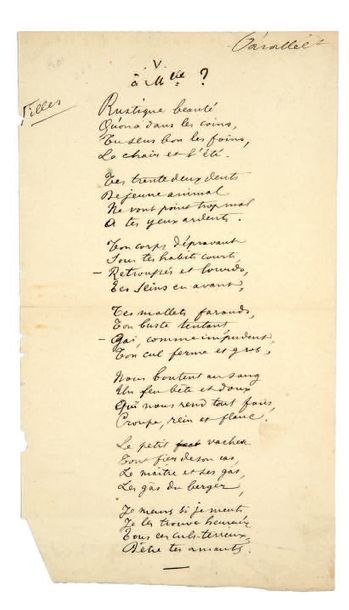 Parallèlt
V.
à Mlle ?
Filles
Rustique beauté
Qu'on a dans les coins,
Tu sens bon les foins,
La chair et l'été.
Tes trente deux dents
De jeune animal
Ne vont point trop mal
A tes yeux ardents.
Ton corps dépravant
Sous tes habits courts,
– Retroussés et lourds,
Tes seins en avant,
Tes mollets farauds,
Ton buste tentant
– Gai, comme impudent,
Ton cul ferme et gros,
Nous boutent au sang
Un feu bête et doux
Qui nous rend tout fous,
Croupe, rein et flanc.
Le petit vacher
Tout fier de son cas,
Le maître et ses gas,
Les gas du berger,
Je meurs si je mens,
Je les trouve heureux
Tous ces culs-terreux
D'être tes amants.